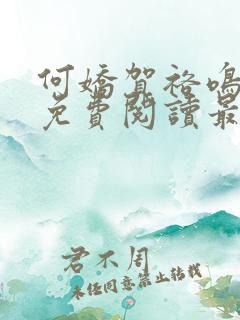 何嬌賀袼鳴
免費閱讀最
君不周
未经同意禁止转载